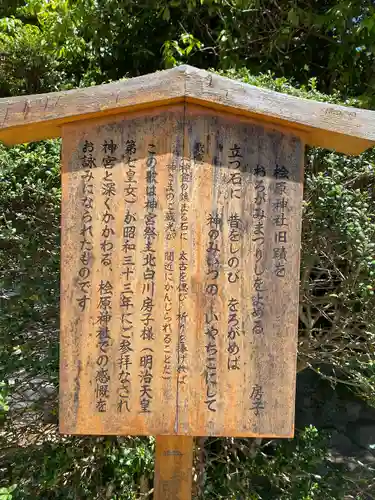 檜原神社旧蹟を
おろがみまつりしをよめる
房子
立つ石に　昔をしのび　をろがめば
神のみいつの　いやちこにして
歌意
（旧跡の鎮まる石に、太古を偲び、祈りを捧げれば
神さまのご威光が、間近にかんじられることだ）
この歌は神宮祭主北白川房子様（明治天皇
第七皇女）が昭和三十三年にご参拝なされ
神宮と深くかかわる、檜原神社での感慨を
お詠みになられたものです